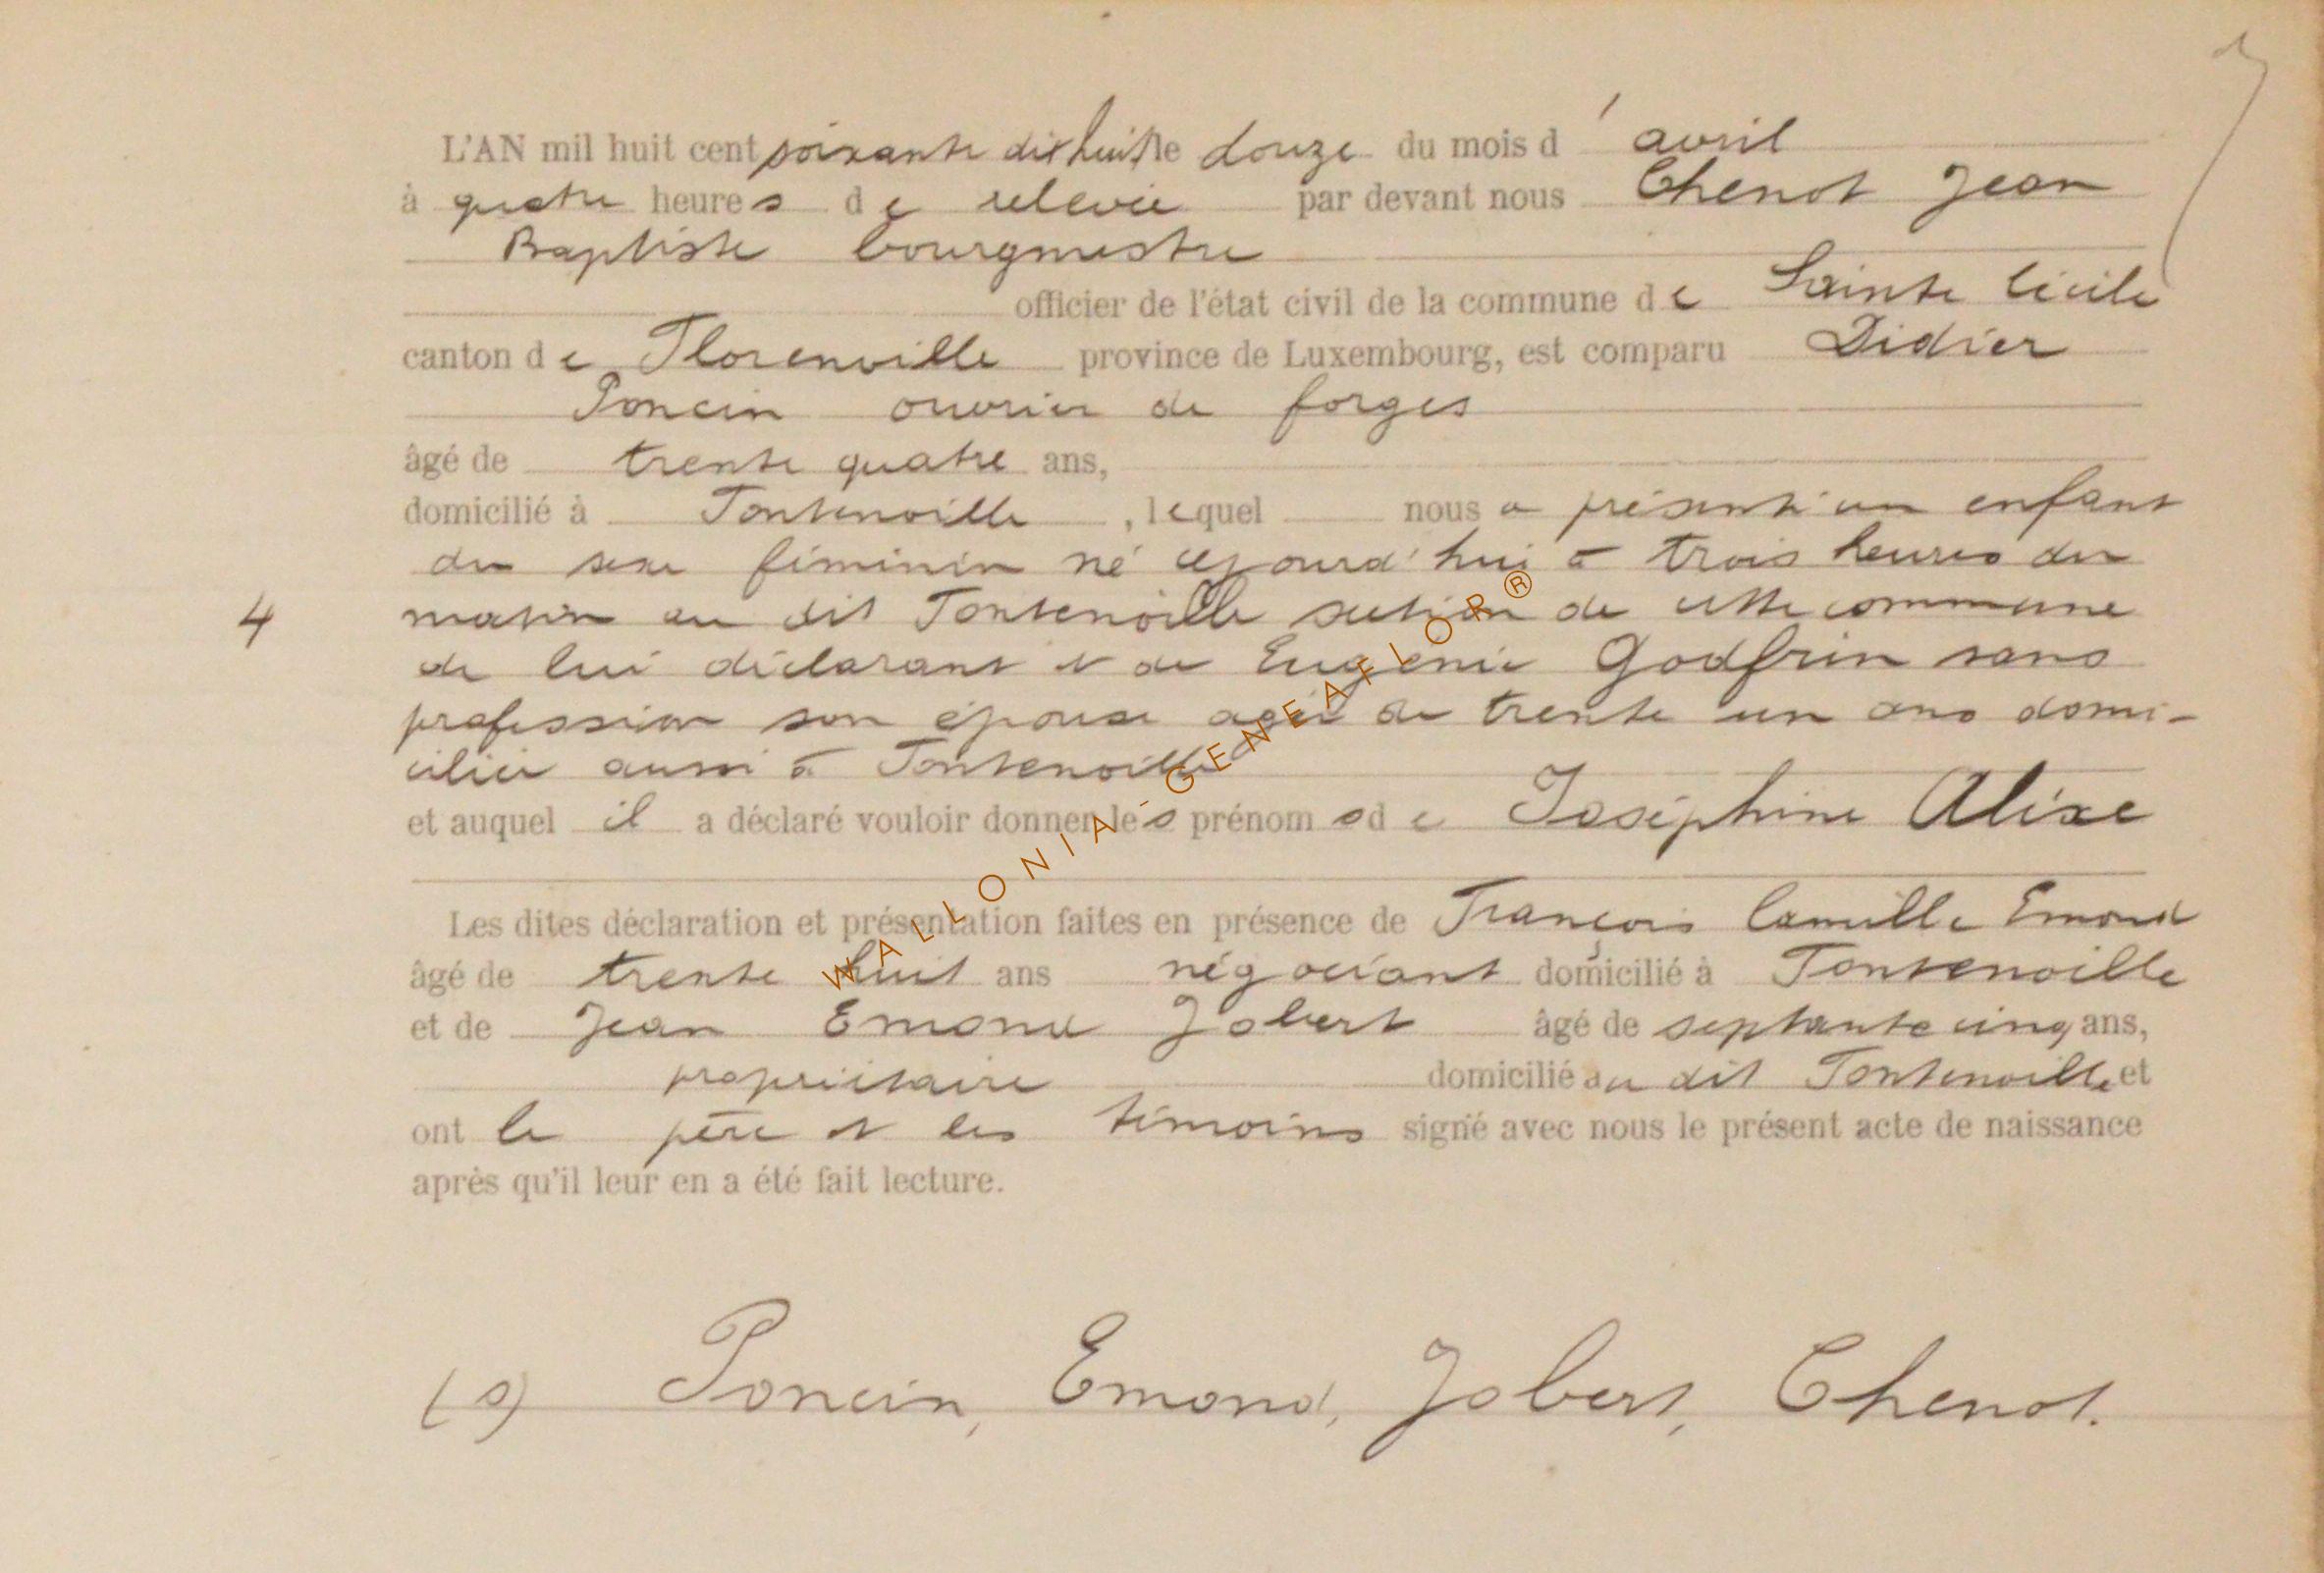 L'AN mil huit cent soixante dix huit le douze du mois d' avril
à quatre heures de relevée par devant nous Chenot Jean
Baptiste bourgmestre
officier de l'état civil de la commune de Sainte Cécile
canton de Florenville province de Luxembourg, est comparu Didier
Poncin ouvrier de forges
âgé de trente quatre ans,
domicilié à Fontenoille, lequel nous a présenté un enfant
du sexe féminin né cejourd'hui à trois heures du
4 matin au dit Fontenoille section de cette commune
de lui déclarant et de Eugénie Godfrin sans
profession son épouse agée de trente un ans domi-
ciliée aussi à Fontenoille
et auquel il a déclaré vouloir donner les prénoms de Joséphine Alixe
Les dites déclaration et présentation faites en présence de François Camille Emond
âgé de trente huit ans négociant domicilié à Fontenoille
et de Jean Emond Jobert âgé de septante cinq ans,
propriétaire domicilié au dit Fontenoille et
ont le père et les témoins signé avec nous le présent acte de naissance
après qu'il leur en a été fait lecture.
(s) Poncin, Emond, Jobert, Chenot.
WALLONIA-GENEAFLOR®